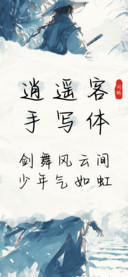 逍遥客
手写体
剑舞风云间
少年气如虹